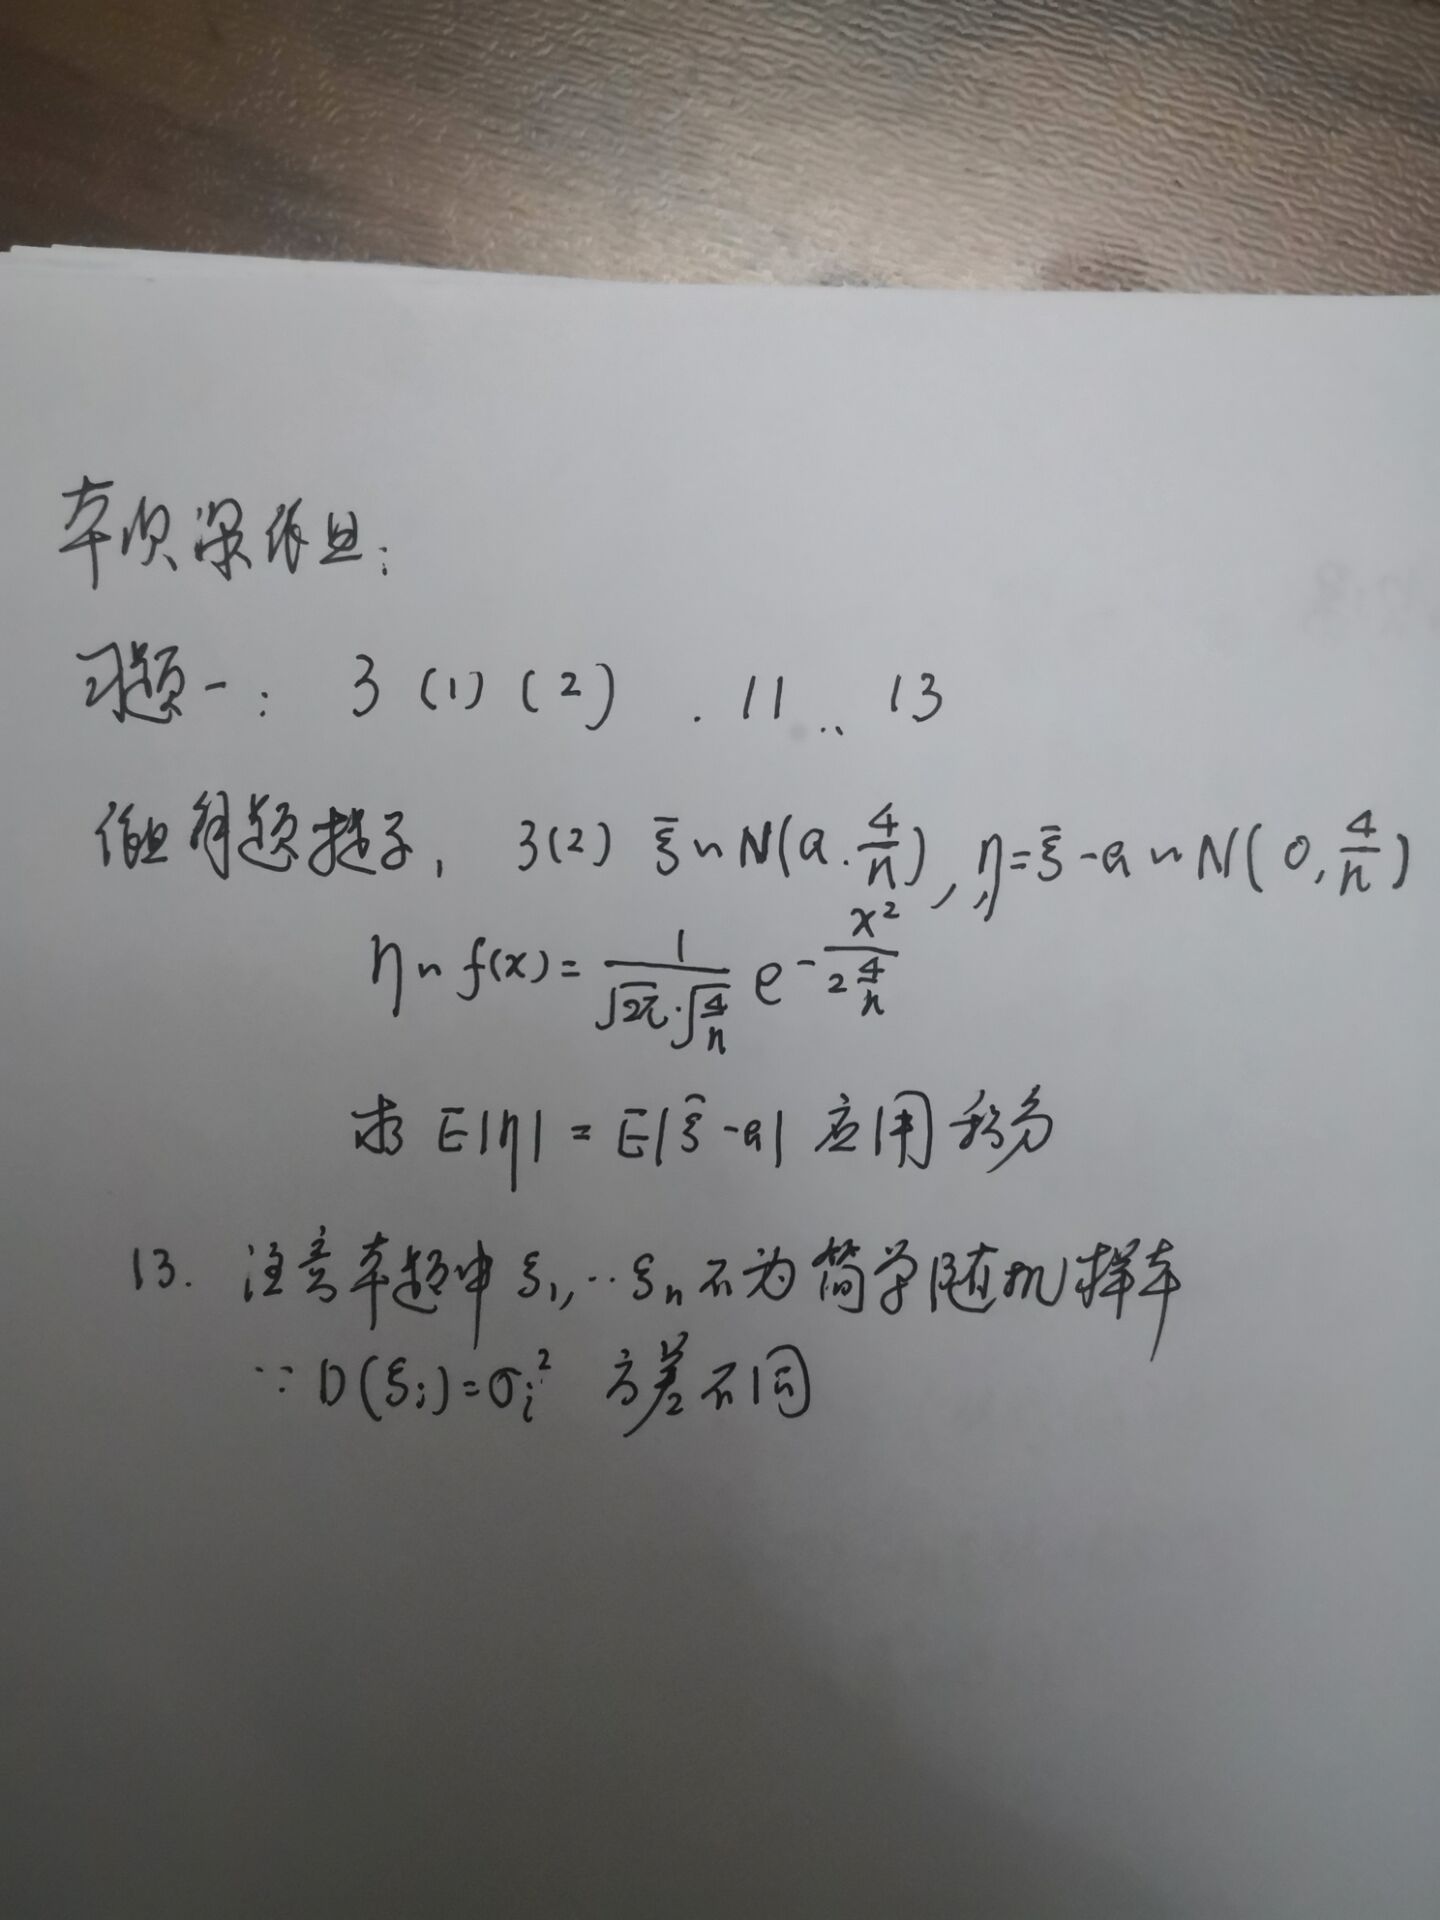 本次课作业:
习题一: 3 (1) (2) . 11 .. 13
作业有题提示, 3(2) ξ̄ ~ N(a. 4/n), η=ξ̄-a ~ N(0, 4/n)
η ~ f(x) = 1/(√2π·√(4/n)) e^(-x²/(2 4/n))
求 E|η| = E|ξ̄-a| 应用积分
13. 注意本题中 ξ₁,..ξₙ不为简单随机样本
∵ D(ξᵢ)=σᵢ² 方差不同